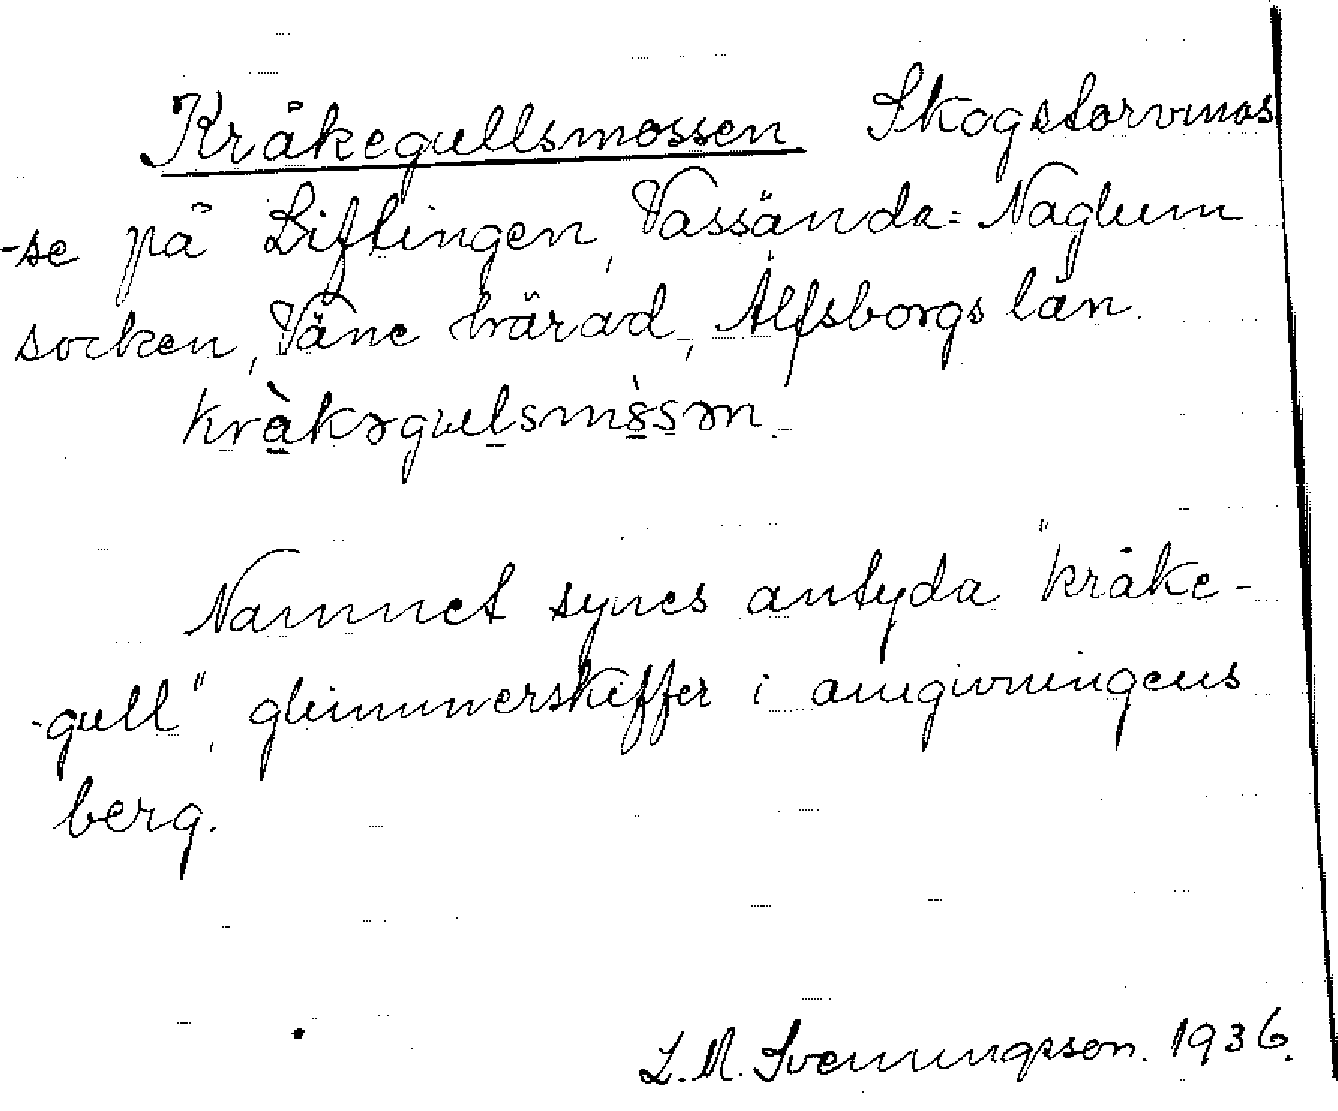 Kråkegullsmossen Skogstorvmos
-se på Liflingen, Vassända-Naglum
socken, Väne härad, Älfsborgs län.
kràkəgulsmssən.
Namnet synes antyda "kråke-
-gull", glimmerskiffer i omgivningens
berg.
L. M. Svenningsson. 1936.